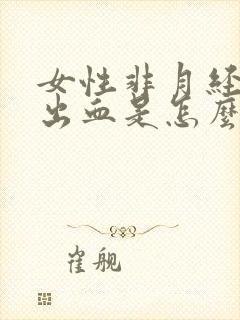 女性非月经
出血是怎麽
崔舰